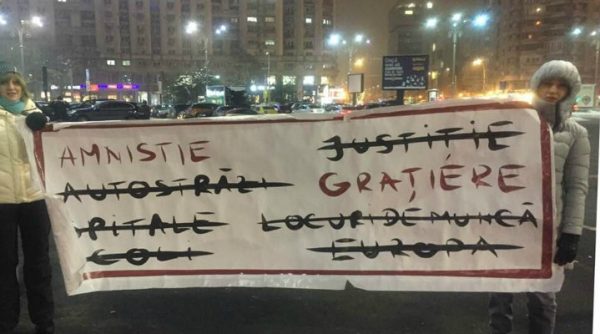 AMNISTIE
AUTOSTRĂZI
PITALE
COLI
JUSTIȚIE
GRAȚIERE
LOCURI DE MUNCĂ
EUROPA